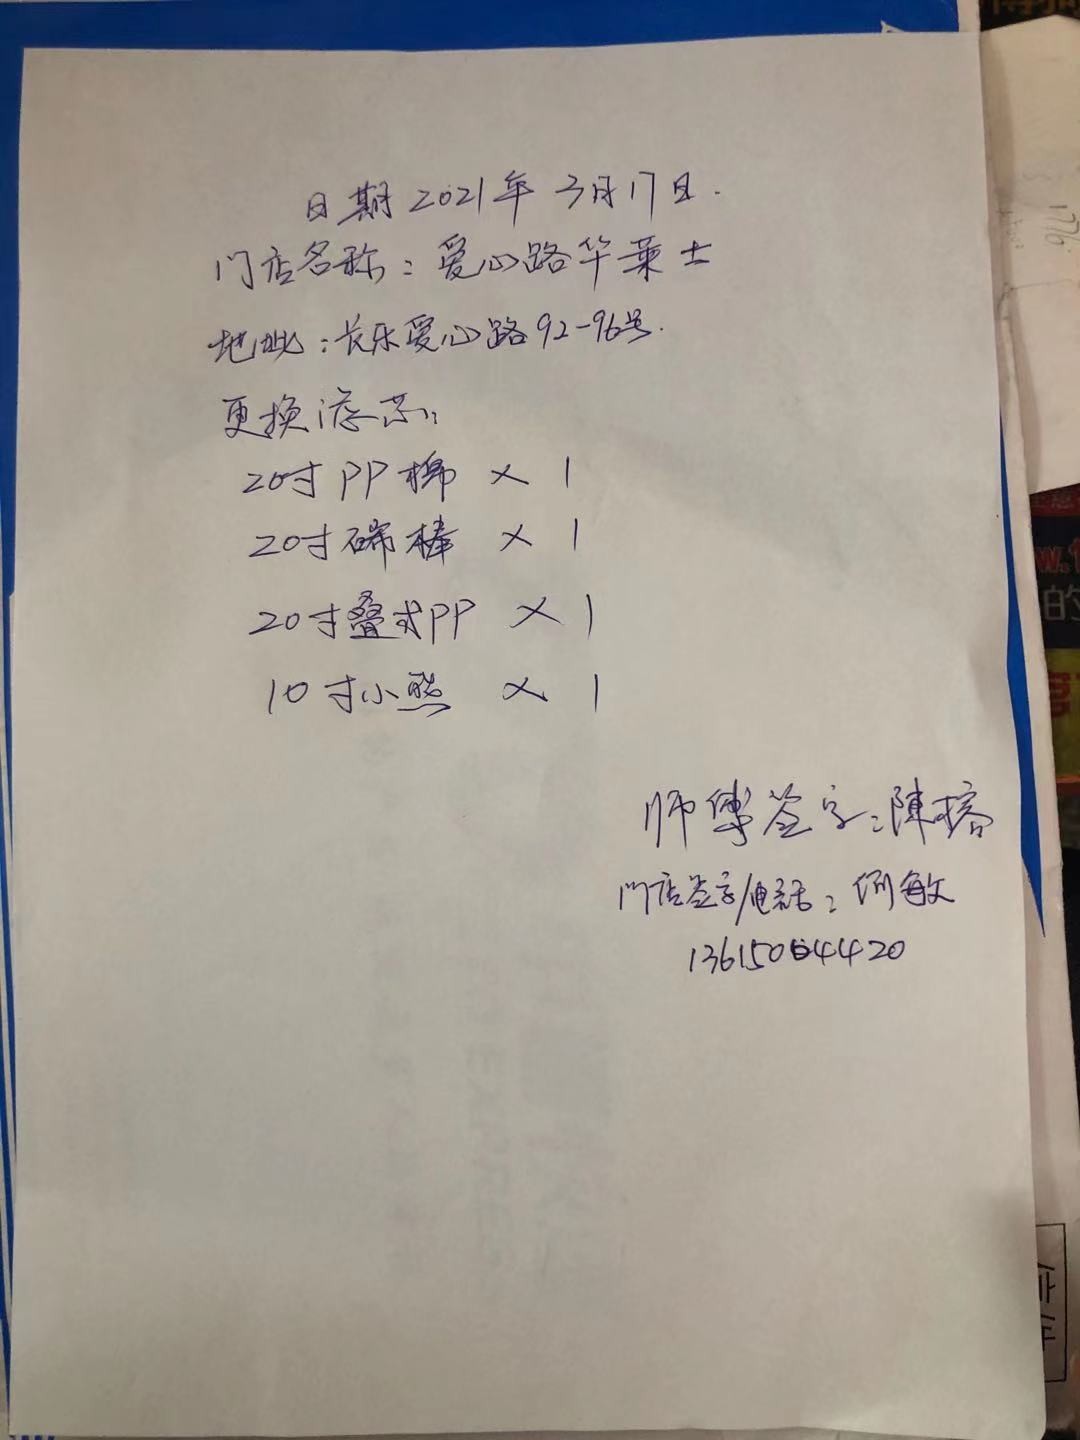 日期2021年3月17日.
门店名称:爱心路华莱士
地址:长乐爱心路92-96号.
更换滤芯:
20寸PP棉 × 1
20寸碳棒 × 1
20寸叠式PP × 1
10寸小熊 × 1
师傅签字:陳榕
门店签字/电話:何敏
13615064420
176
的